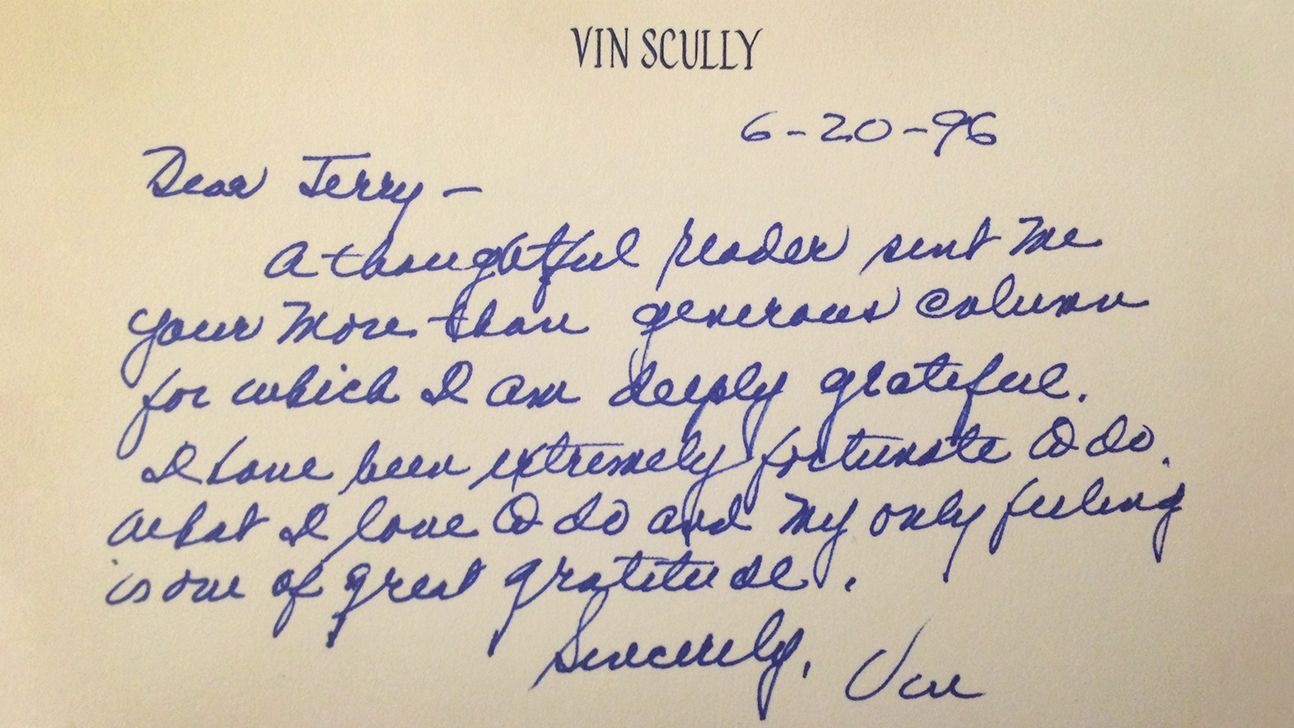 VIN SCULLY
6-20-96
Dear Jerry –
A thoughtful reader sent me
your more than generous column
for which I am deeply grateful.
I have been extremely fortunate to do
what I love to do and my only feeling
is one of great gratitude.
Sincerely, Vin